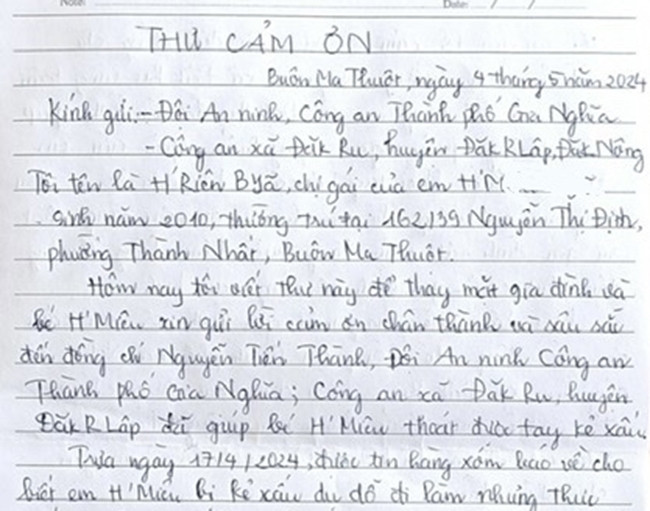 Note:
Date: / /
THƯ CẢM ƠN
Buôn Ma Thuột, ngày 4 tháng 5 năm 2024
Kính gửi: - Đội An ninh, Công an Thành phố Gia Nghĩa
- Công an xã Đăk Ru, huyện Đăk RLấp, Đăk Nông
Tôi tên là H'Riên Byă, chị gái của em H'M...
sinh năm 2010, thường trú tại 162/39 Nguyễn Thị Định,
phường Thành Nhất, Buôn Ma Thuột.
Hôm nay tôi viết thư này để thay mặt gia đình và
bé H'Miêu xin gửi lời cảm ơn chân thành và sâu sắc
đến đồng chí Nguyễn Tiến Thành, Đội An ninh Công an
Thành phố Gia Nghĩa; Công an xã Đăk Ru, huyện
Đăk R Lấp đã giúp bé H'Miêu thoát được tay kẻ xấu.
Trưa ngày 17/4/2024, được tin hàng xóm báo về cho
biết em H'Miêu bị kẻ xấu dụ dỗ đi làm nhưng thực